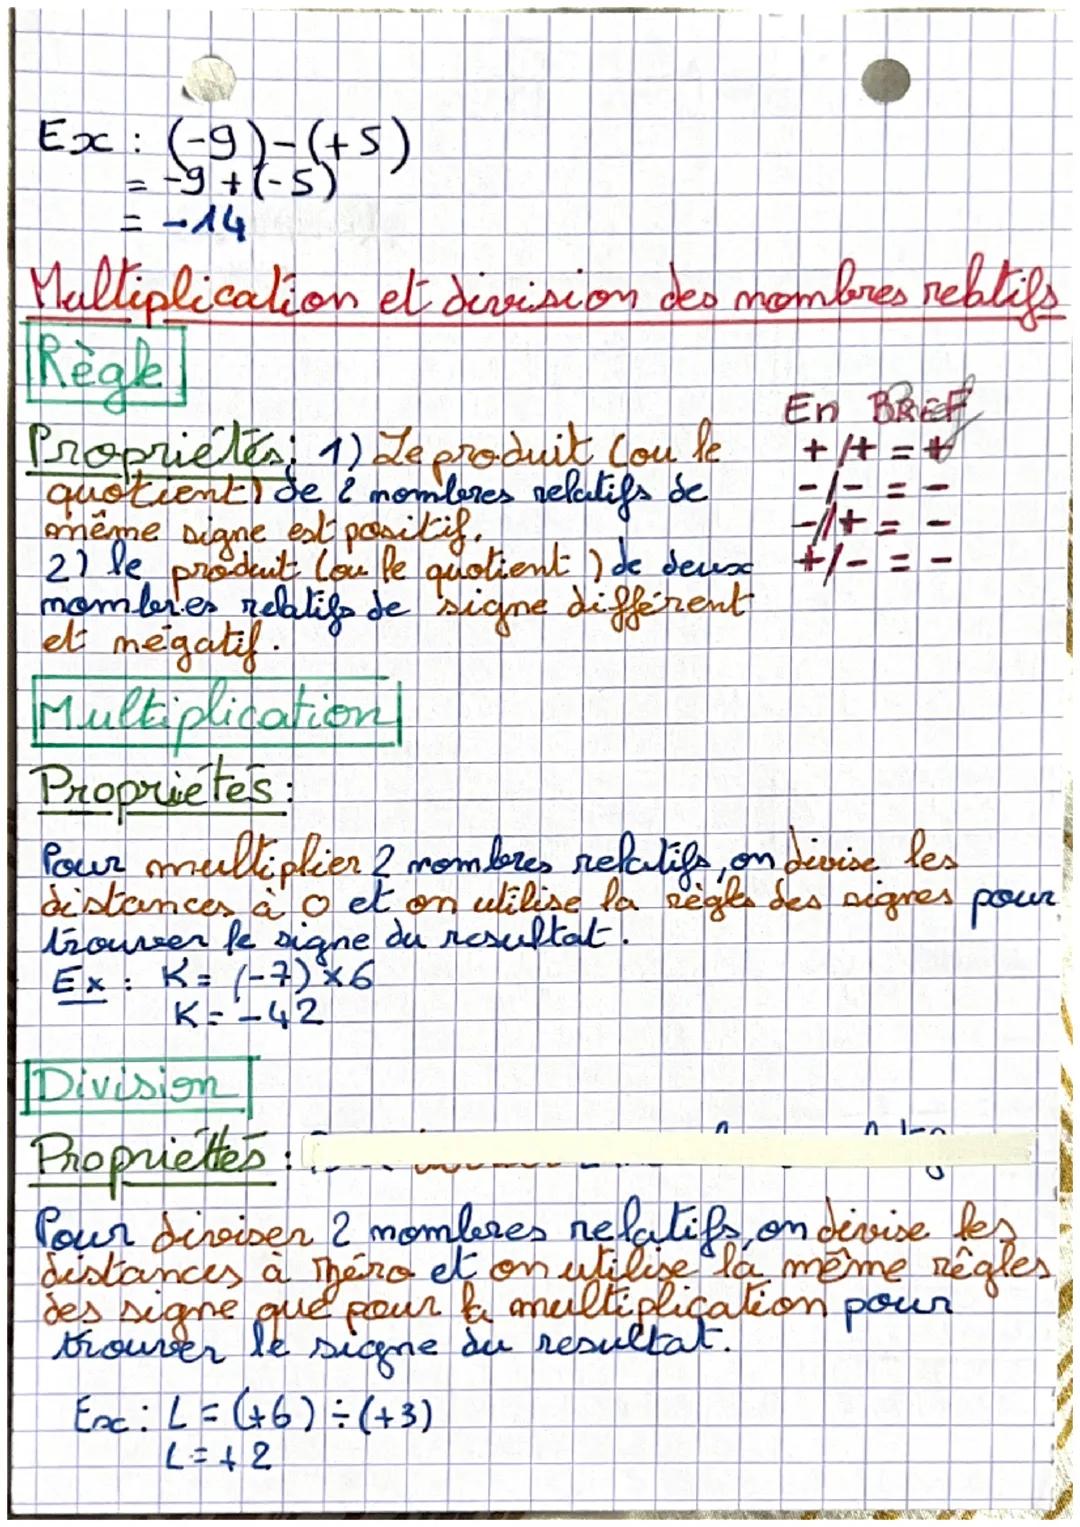 Ex : (-9)-(+5)
= -9+(-5)
= -14
Multiplication et division des nombres reltifs
Règle
En BREF
Propriétés: 1) Le produit (ou le
+/+ = +
quotient) de 2 nombres relatifs de
-/- = -
même signe est positif.
-//+ = -
2) le produit (ou le quotient) de deux
+/- = -
nombres relatifs de signe différent
et négatif.
Multiplication
Propriétés:
Pour multiplier 2 nombres relatifs, on divise les
distances à 0 et on utilise la règles des signes pour
trouver le signe du resultat.
Ex : K= (-7)×6
K= -42
Division
Propriéttés :
Pour diviser 2 nombres relatifs, on divise les
distances à zéro et on utilise la même rêgles
des signe que pour la multiplication pour
trouver le signe du resultat.
Ex: L = (+6) ÷ (+3)
L = +2